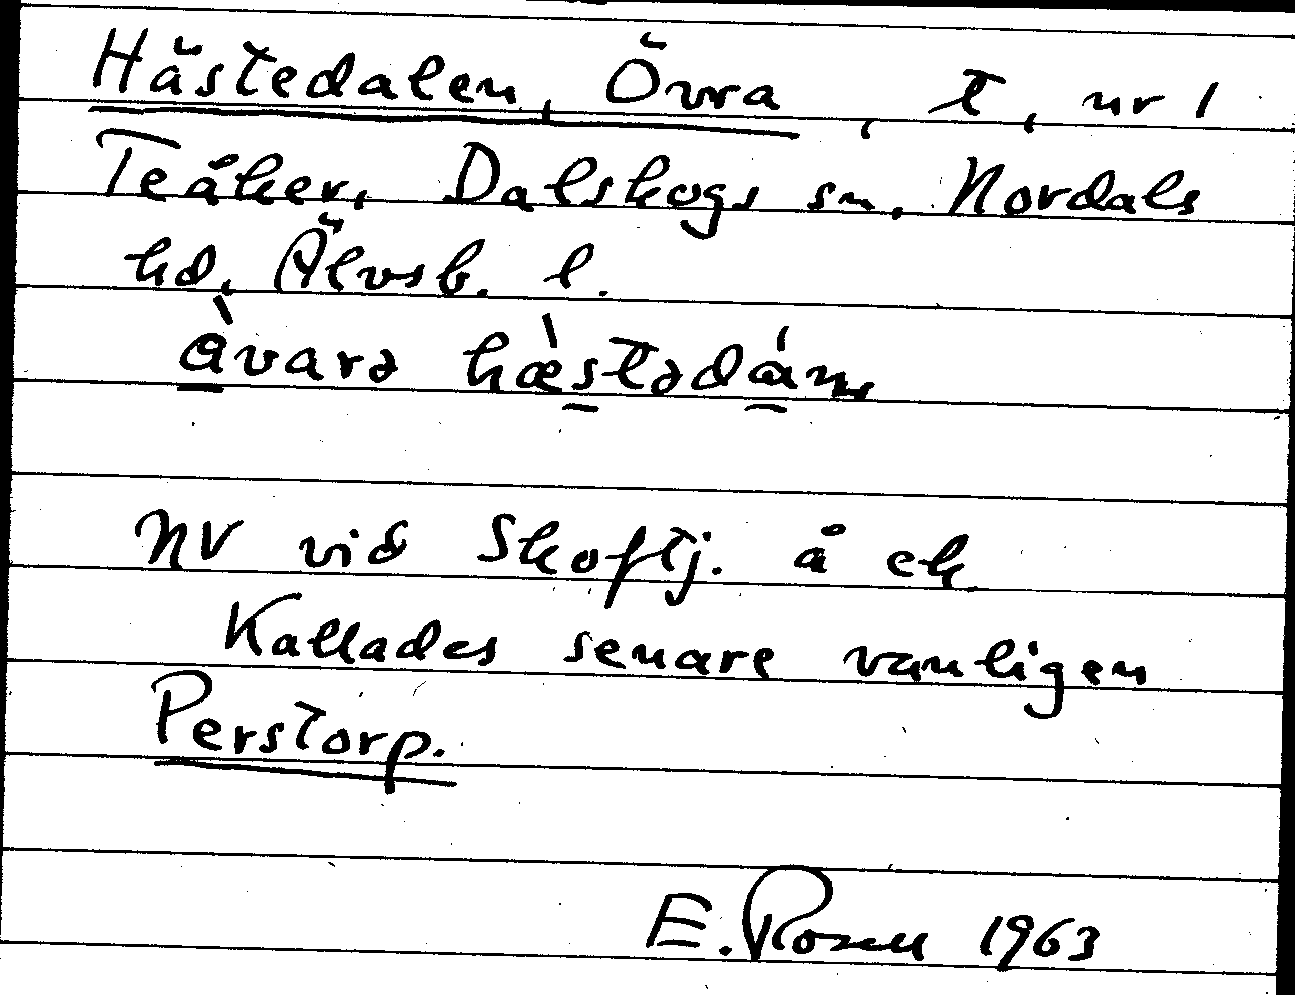 Hästedalen, Övra, t, nr 1
Teåker, Dalskogs sn, Nordals
hd, Älvsb. l.
àvarə hæ̀stədám
NV vid Skoftj. å ek
Kallades senare vanligen
Perstorp.
E. Rosell 1963